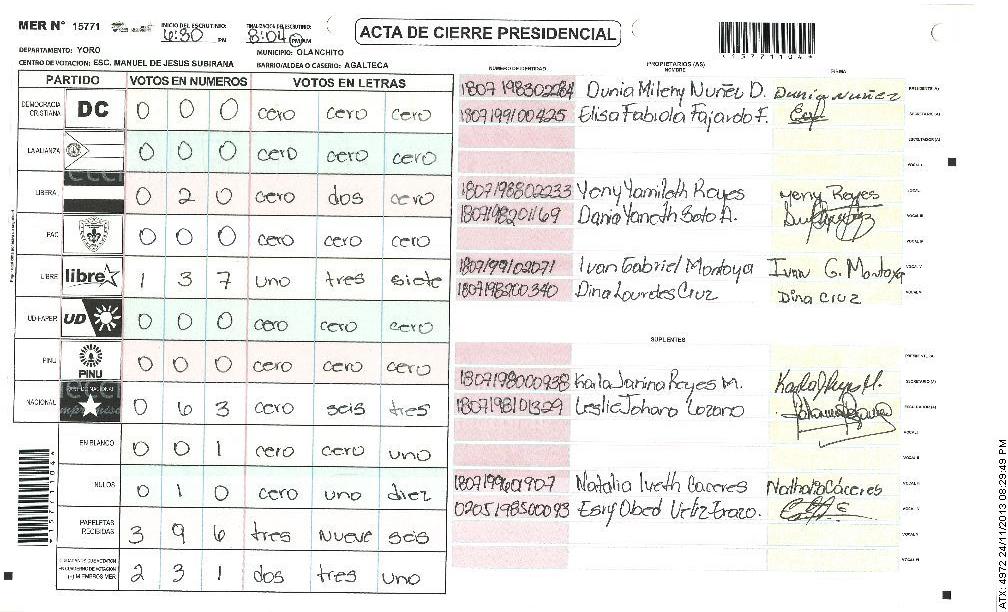 MER N° 15771
INICIO DEL ESCRUTINIO: 6:30 PM
FINALIZACION DEL ESCRUTINIO: 8:04 PM/AM
ACTA DE CIERRE PRESIDENCIAL
*15771104*
DEPARTAMENTO: YORO
MUNICIPIO: OLANCHITO
CENTRO DE VOTACION: ESC. MANUEL DE JESUS SUBIRANA
BARRIO/ALDEA O CASERIO: AGALTECA
PARTIDO VOTOS EN NUMEROS VOTOS EN LETRAS
DEMOCRACIA CRISTIANA DC 0 0 0 cero cero cero
LA ALIANZA 0 0 0 cero cero cero
LIBERAL 0 2 0 cero dos cero
PAC 0 0 0 cero cero cero
LIBRE libre 1 3 7 uno tres siete
UD-FAPER UD 0 0 0 cero cero cero
PINU PINU 0 0 0 cero cero cero
NACIONAL 0 6 3 cero seis tres
EN BLANCO 0 0 1 cero cero uno
NULOS 0 1 0 cero uno diez
PAPELETAS RECIBIDAS 3 9 6 tres nueve seis
(+) MIEMBROS MER 2 3 1 dos tres uno
NUMERO DE IDENTIDAD
PROPIETARIOS (AS)
NOMBRE
FIRMA
1807198302284 Dunia Mileny Nuñez D. Dunia Nuñez PRESIDENTE (A)
1807199100425 Elisa Fabiola Fajardo F. SECRETARIO (A)
ESCRUTADOR (A)
VOCAL I
1807198802233 Yeny Yamileth Reyes Yeny Reyes VOCAL
1807198201169 Dania Yaneth Soto A. VOCAL III
VOCAL IV
1807199102071 Ivan Gabriel Montoya Ivan G. Montoya VOCAL V
1807198200340 Dina Lourdes Cruz Dina Cruz VOCAL
SUPLENTES
PRESIDENTE (A)
1807198000938 Karla Janina Reyes M. SECRETARIO (A)
1807198101329 Leslie Johana Lozano ESCRUTADOR (A)
VOCAL I
VOCAL II
1807199601907 Natalia Iveth Caceres Nathalia Cáceres VOCAL
0205198500093 VOCAL
VOCAL V
VOCAL VI
*15771104*
ATX: 4972 24/11/2013 08:29:49 PM